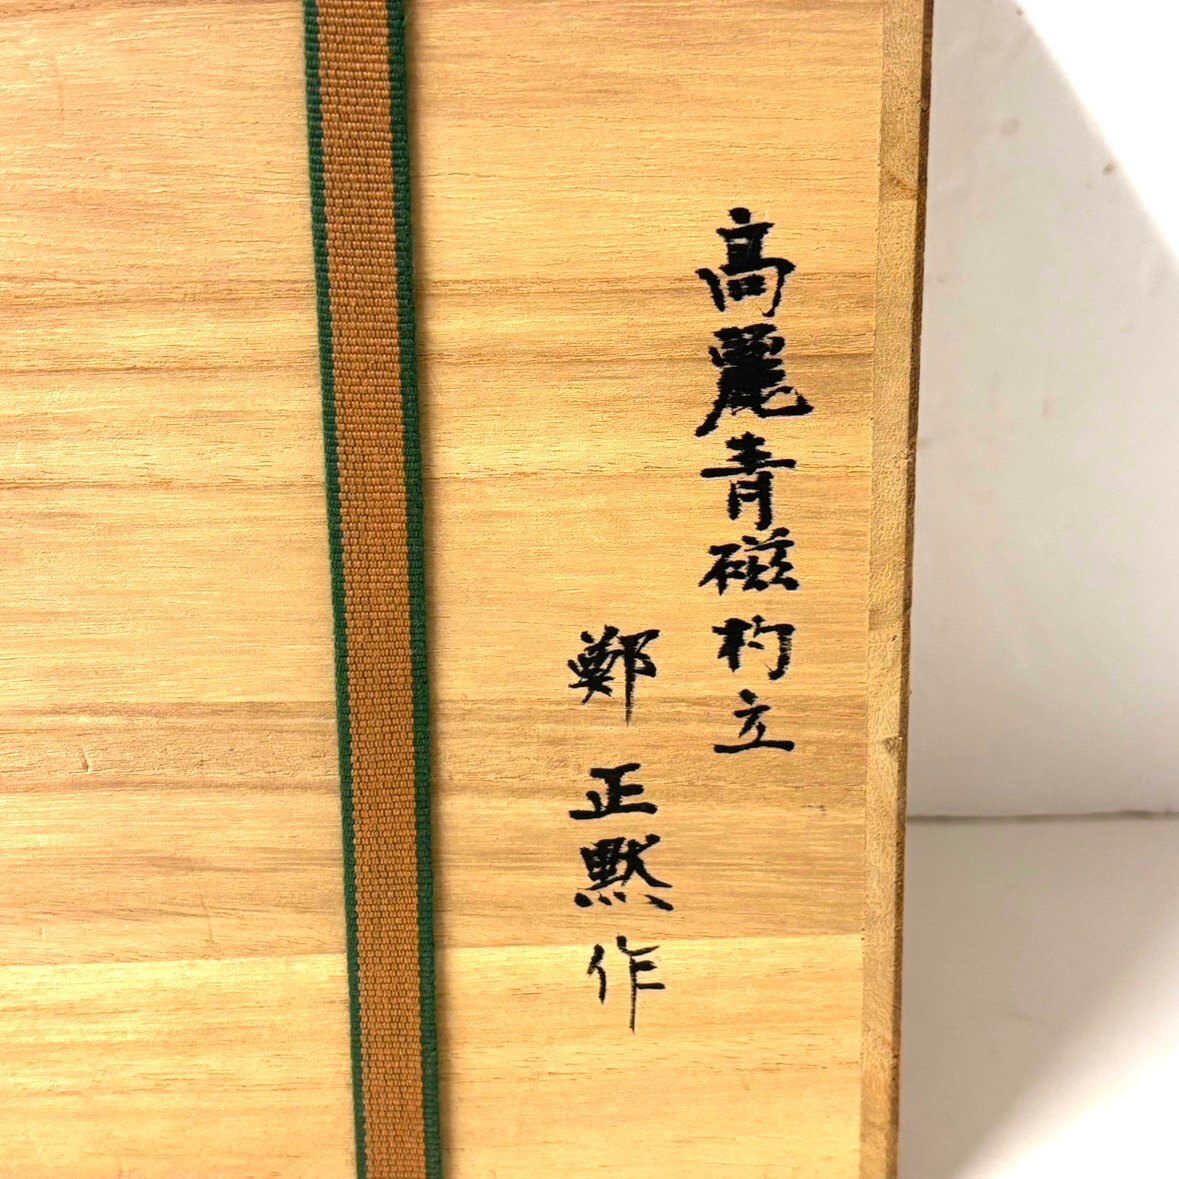 高麗青磁杓立
鄭正黙作